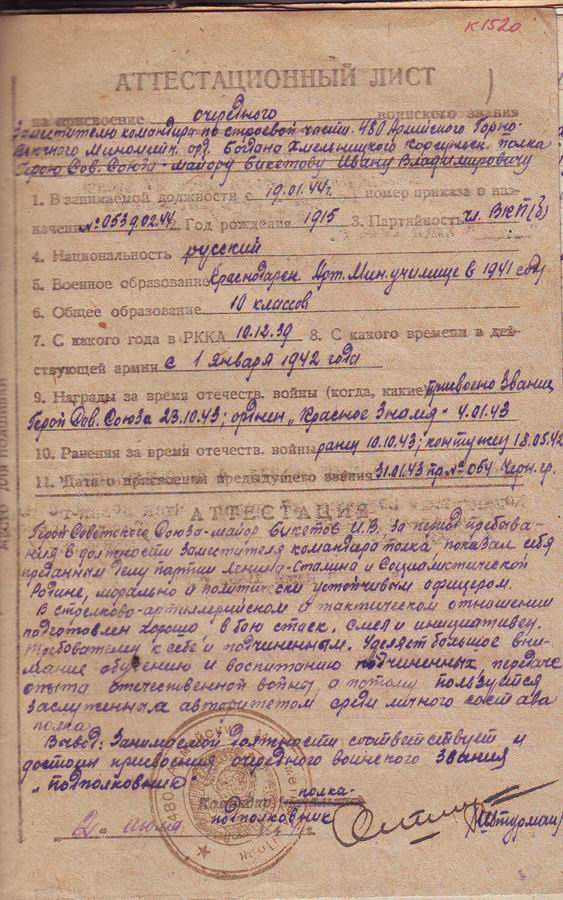 К1520
АТТЕСТАЦИОННЫЙ ЛИСТ
на присвоение очередного воинского звания
Заместителю командира по строевой части 480 Армейского Горно-
Вьючного Минометн. орд. Богдана Хмельницкого Корсунск. полка
Герою Сов. Союза - майору Бикетову Ивану Владимировичу
1. В занимаемой должности с 19.01.44г. номер приказа о наз-
начении №053902.44 2. Год рождения 1915 3. Партийность чл. ВКП(б)
4. Национальность русский
5. Военное образование Краснодарск. Арт. Мин. училище в 1941 году
6. Общее образование 10 классов
7. С какого года в РККА 10.12.39 8. С какого времени в дей-
ствующей армии с 1 Января 1942 года
9. Награды за время отечеств. войны (когда, какие) присвоено Звание
Герой Сов. Союза 23.10.43; орден „Красное Знамя" 4.01.43
10. Ранения за время отечеств. войны ранен 10.10.43; контужен 18.05.42
11. Дата о присвоении предыдущего звания 31.01.43 пр№ 064 Черн. гр.
МЕСТО ДЛЯ ПОДШИВКИ
АТТЕСТАЦИЯ
Герой Советского Союза - майор Бикетов И.В. за период пребыва-
ния в должности заместителя командира полка показал себя
преданным делу партии Ленина-Сталина и Социалистической
Родине, морально и политически устойчивым офицером.
В стрелково-артиллерийском и тактическом отношении
подготовлен хорошо, в бою стоек, смел и инициативен,
требователен к себе и подчиненным. Уделяет большое вни-
мание обучению и воспитанию подчиненных, передаче
опыта отечественной войны, а потому пользуется
заслуженным авторитетом среди личного состава
полка
Вывод: Занимаемой должности соответствует и
достоин присвоения очередного воинского звания
„подполковник"
480
Командир полка-
подполковник
2 июля
/Штурман/